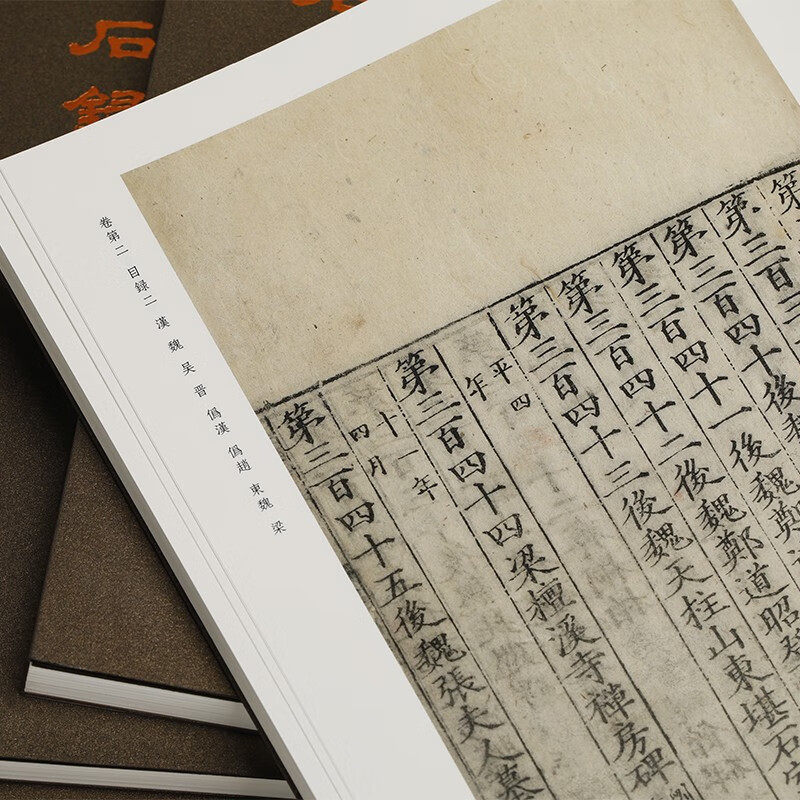 石録
卷第二 目録二 漢 魏 吴 晋 僞漢 僞趙 東魏 梁
第
第三百三
第三百四十後魏
第三百四十一後魏鄭
第三百四十二後魏鄭道昭
第三百四十三後魏天柱山東堪石室
平四
年
第三百四十四梁檀溪寺禪房碑
十一年
四月
第三百四十五後魏張夫人墓